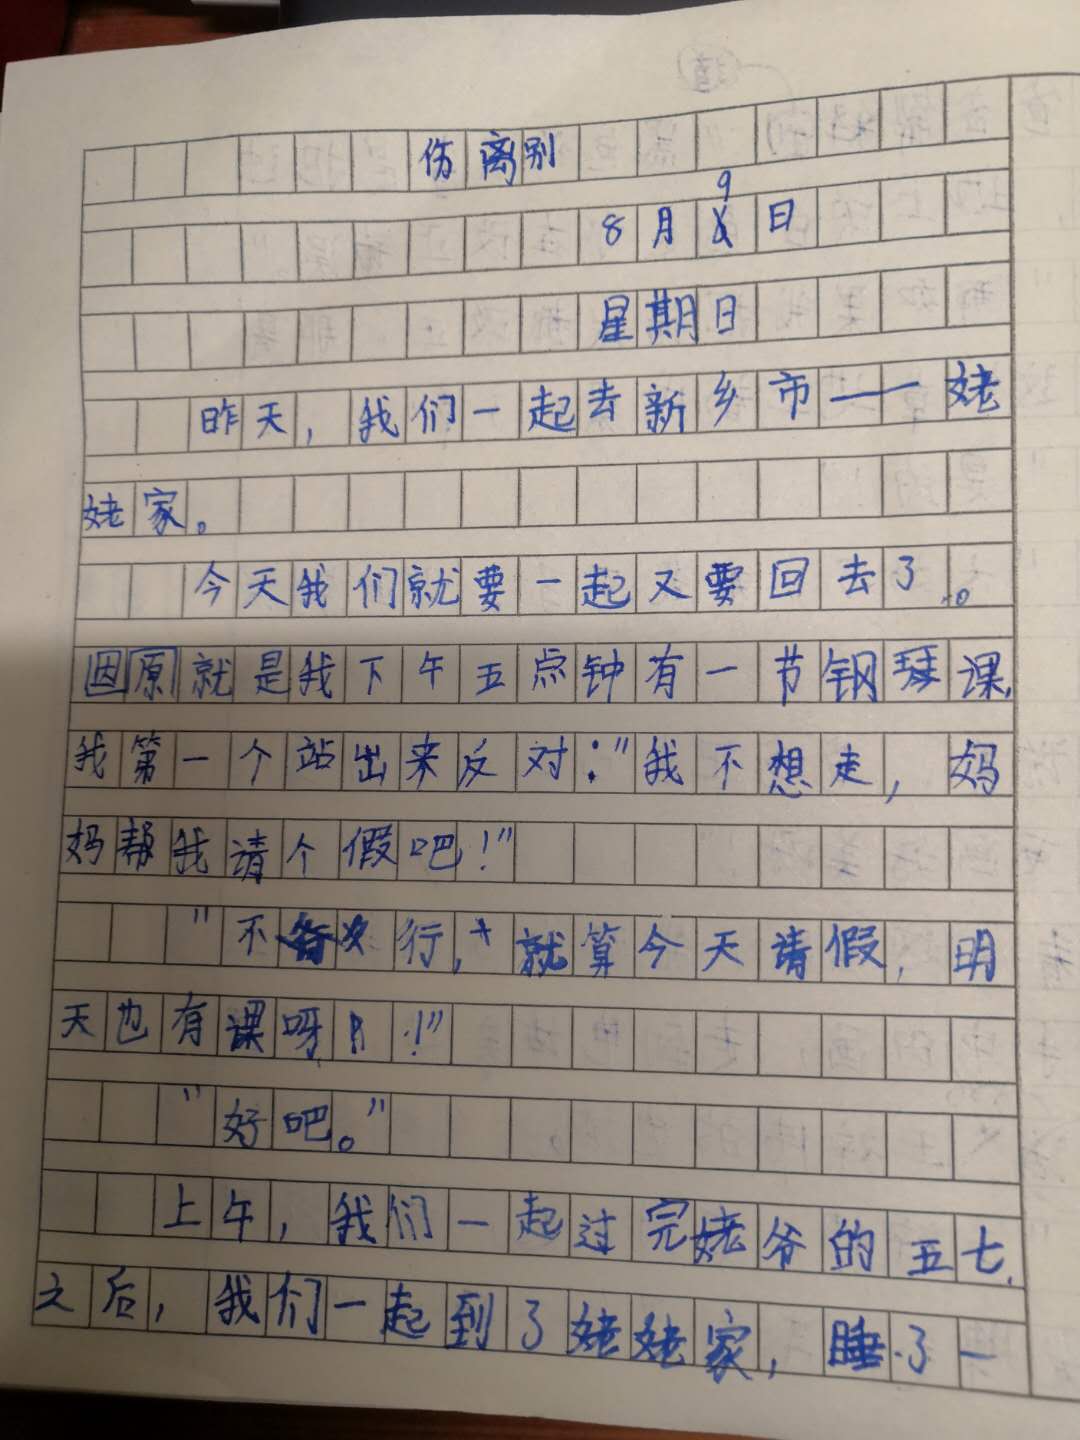 伤离别
8月9日
星期日
昨天，我们一起去新乡市——姥
姥家。
今天我们就要一起又要回去了。
因原就是我下午五点钟有一节钢琴课，
我第一个站出来反对："我不想走，妈
妈帮我请个假吧！"
"不行，就算今天请假，明
天也有课呀！"
"好吧。"
上午，我们一起过完姥爷的五七，
之后，我们一起到了姥姥家，睡了一